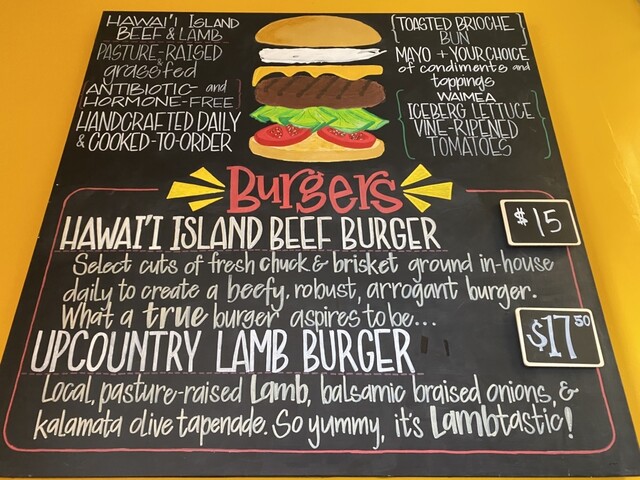 HAWAI'I ISLAND
BEEF & LAMB
PASTURE-RAISED
&
grassfed
ANTIBIOTIC- and
HORMONE-FREE
HANDCRAFTED DAILY
& COOKED-TO-ORDER
TOASTED BRIOCHE
BUN
MAYO + YOUR CHOICE
of condiments and
toppings
WAIMEA
ICEBERG LETTUCE
VINE-RIPENED
TOMATOES
Burgers
HAWAI'I ISLAND BEEF BURGER
$15
Select cuts of fresh chuck & brisket ground in-house
daily to create a beefy, robust, arrogant burger.
What a true burger aspires to be...
UPCOUNTRY LAMB BURGER
$17.50
Local, pasture-raised Lamb, balsamic braised onions, &
kalamata olive tapenade. So yummy, it's Lambtastic!